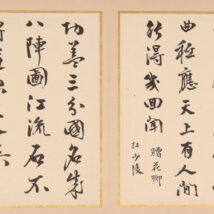 曲秖應天上有人間
能得幾回聞 贈花卿
杜少陵
功蓋三分國名成
八陣圖江流石不